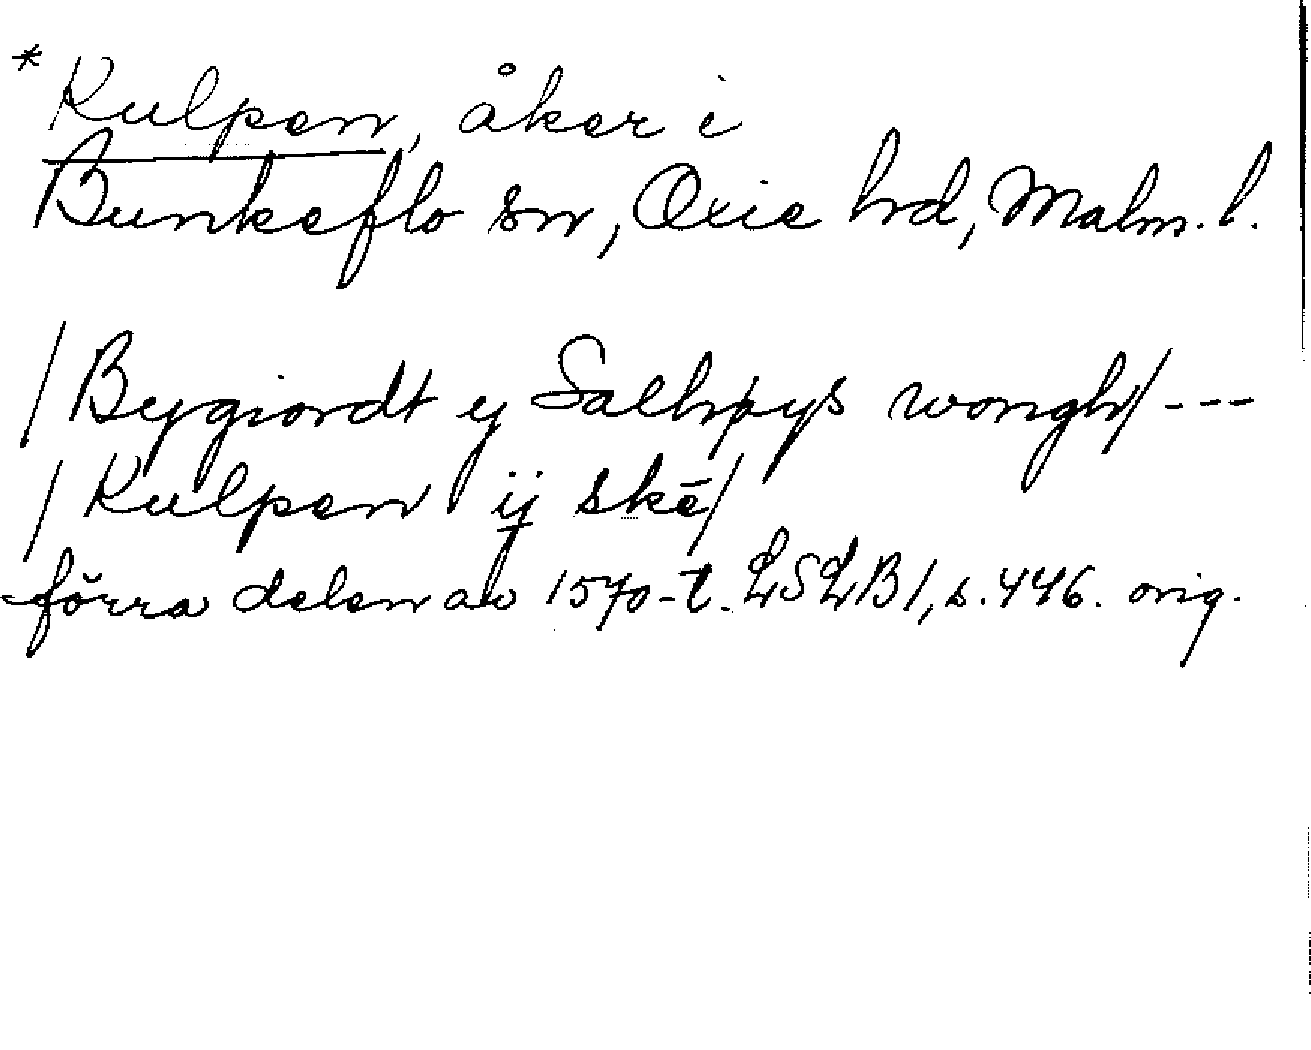 * Kulpen, åker i
Bunkeflo sn, Oxie hrd, Malm. l.
/Bygiordt y Salhøys wongh/ ---
/Kulpen ij skē/
förra delen av 1570-t. LSLB 1, s. 446. orig.